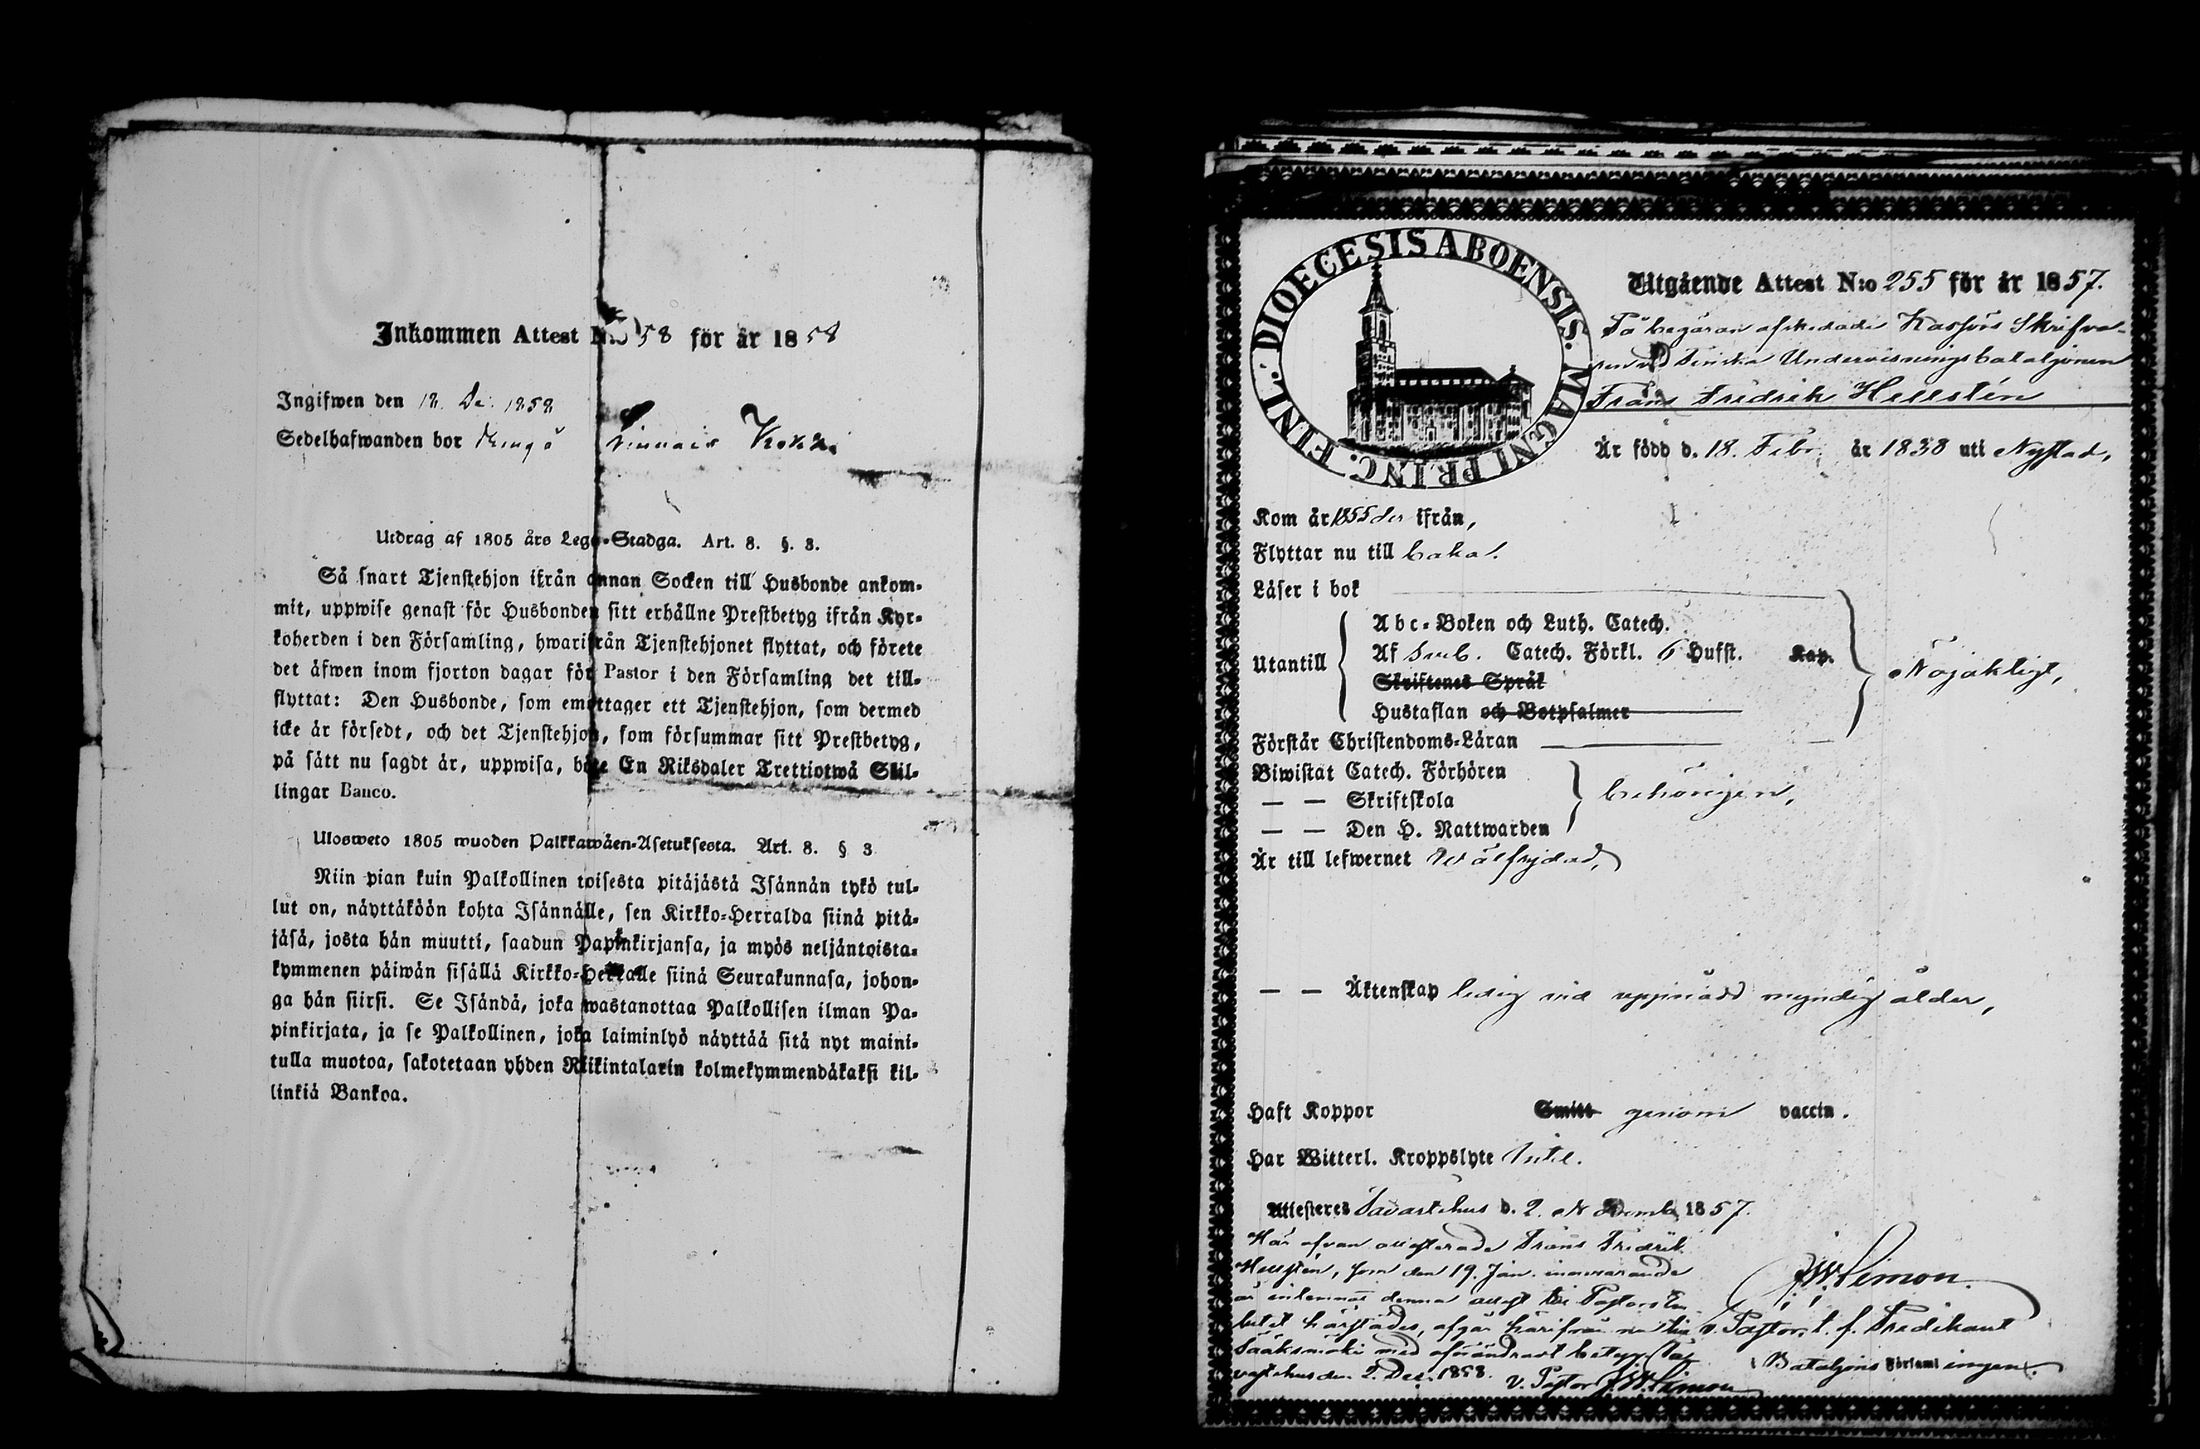 Inkommen Attest N:o 58 för år 1858
Ingifwen den 18. De. 1858
Sedelhafwanden bor
Utdrag af 1805 års Lego-Stadga. Art. 8. §. 3.
Så snart Tjenstehjon ifrån annan Socken till Husbonde ankom-
mit, uppwise genast för Husbonden sitt erhållne Prestbetyg ifrån Kyr-
koherden i den Församling, hwarifrån Tjenstehjonet flyttat, och förete
det äfwen inom fjorton dagar för Pastor i den Församling det till-
flyttat: Den Husbonde, som emottager ett Tjenstehjon, som dermed
icke är försedt, och det Tjenstehjon, som försummar sitt Prestbetyg,
på sätt nu sagdt är, uppwisa, böte En Riksdaler Trettiotwå Skil-
lingar Banco.
Ulosweto 1805 wuoden Palkkawäen-Asetuksesta. Art. 8. § 3
Niin pian kuin Palkollinen toisesta pitäjästä Isännän tykö tul-
lut on, näyttäköön kohta Isännälle, sen Kirkko-Herralda siinä pitä-
jäsä, josta hän muutti, saadun Papinkirjansa, ja myös neljäntoista-
kymmenen päiwän sisällä Kirkko-Herralle siinä Seurakunnasa, johon-
ga hän siirsi. Se Isändä, joka wastanottaa Palkollisen ilman Pa-
pinkirjata, ja se Palkollinen, joka laiminlyö näyttää sitä nyt maini-
tulla muotoa, sakotetaan yhden Riikintalarin kolmekymmendäkaksi kil-
linkiä Bankoa.
DIOECESIS ABOENSIS. MAGNI PRINC. FINL.
Utgående Attest N:o 255 för år 1857.
På begäran afskedade Kassörs Skrifva-
ren vid Finska Undervisningsbataljonen
Frans Fredrik Hellstén
Är född d. 18. Febr. år 1838 uti Nystad,
Kom år 1855 der ifrån,
Flyttar nu till
Läser i bok
Abc-Boken och Luth. Catech.
Utantill Af Sveb. Catech. Förkl. 6 Hufst. Kap. Nöjaktigt,
Skriftenes Språk
Hustaflan och Botpsalmer
Förstår Christendoms-Läran
Biwistat Catech. Förhören
— — Skriftskola behörigen,
— — Den H. Nattwarden
Är till lefwernet Wälfrejdad,
— — Äktenskap ledig vid uppnådd myndig ålder,
Haft Koppor Smitt genom vaccin.
Har Witterl. Kroppslyte Intet.
Attesteres Tavastehus d. 2. Novemb. 1857.
Här ofvan attesterade Frans Fredrik
Hellstén, som den 19. Jan. innevarande
år inlemnat denna attest till Pastorsem-
betet härstädes, afgår härifrån nu till
Sääksmäki med oförändradt betyg. Ta-
vastehus den 2. Dec. 1858.
v. Pastor J.W. Simon
J.W. Simon.
v. Pastor, t. f. Predikant
i Bataljons Församlingen.